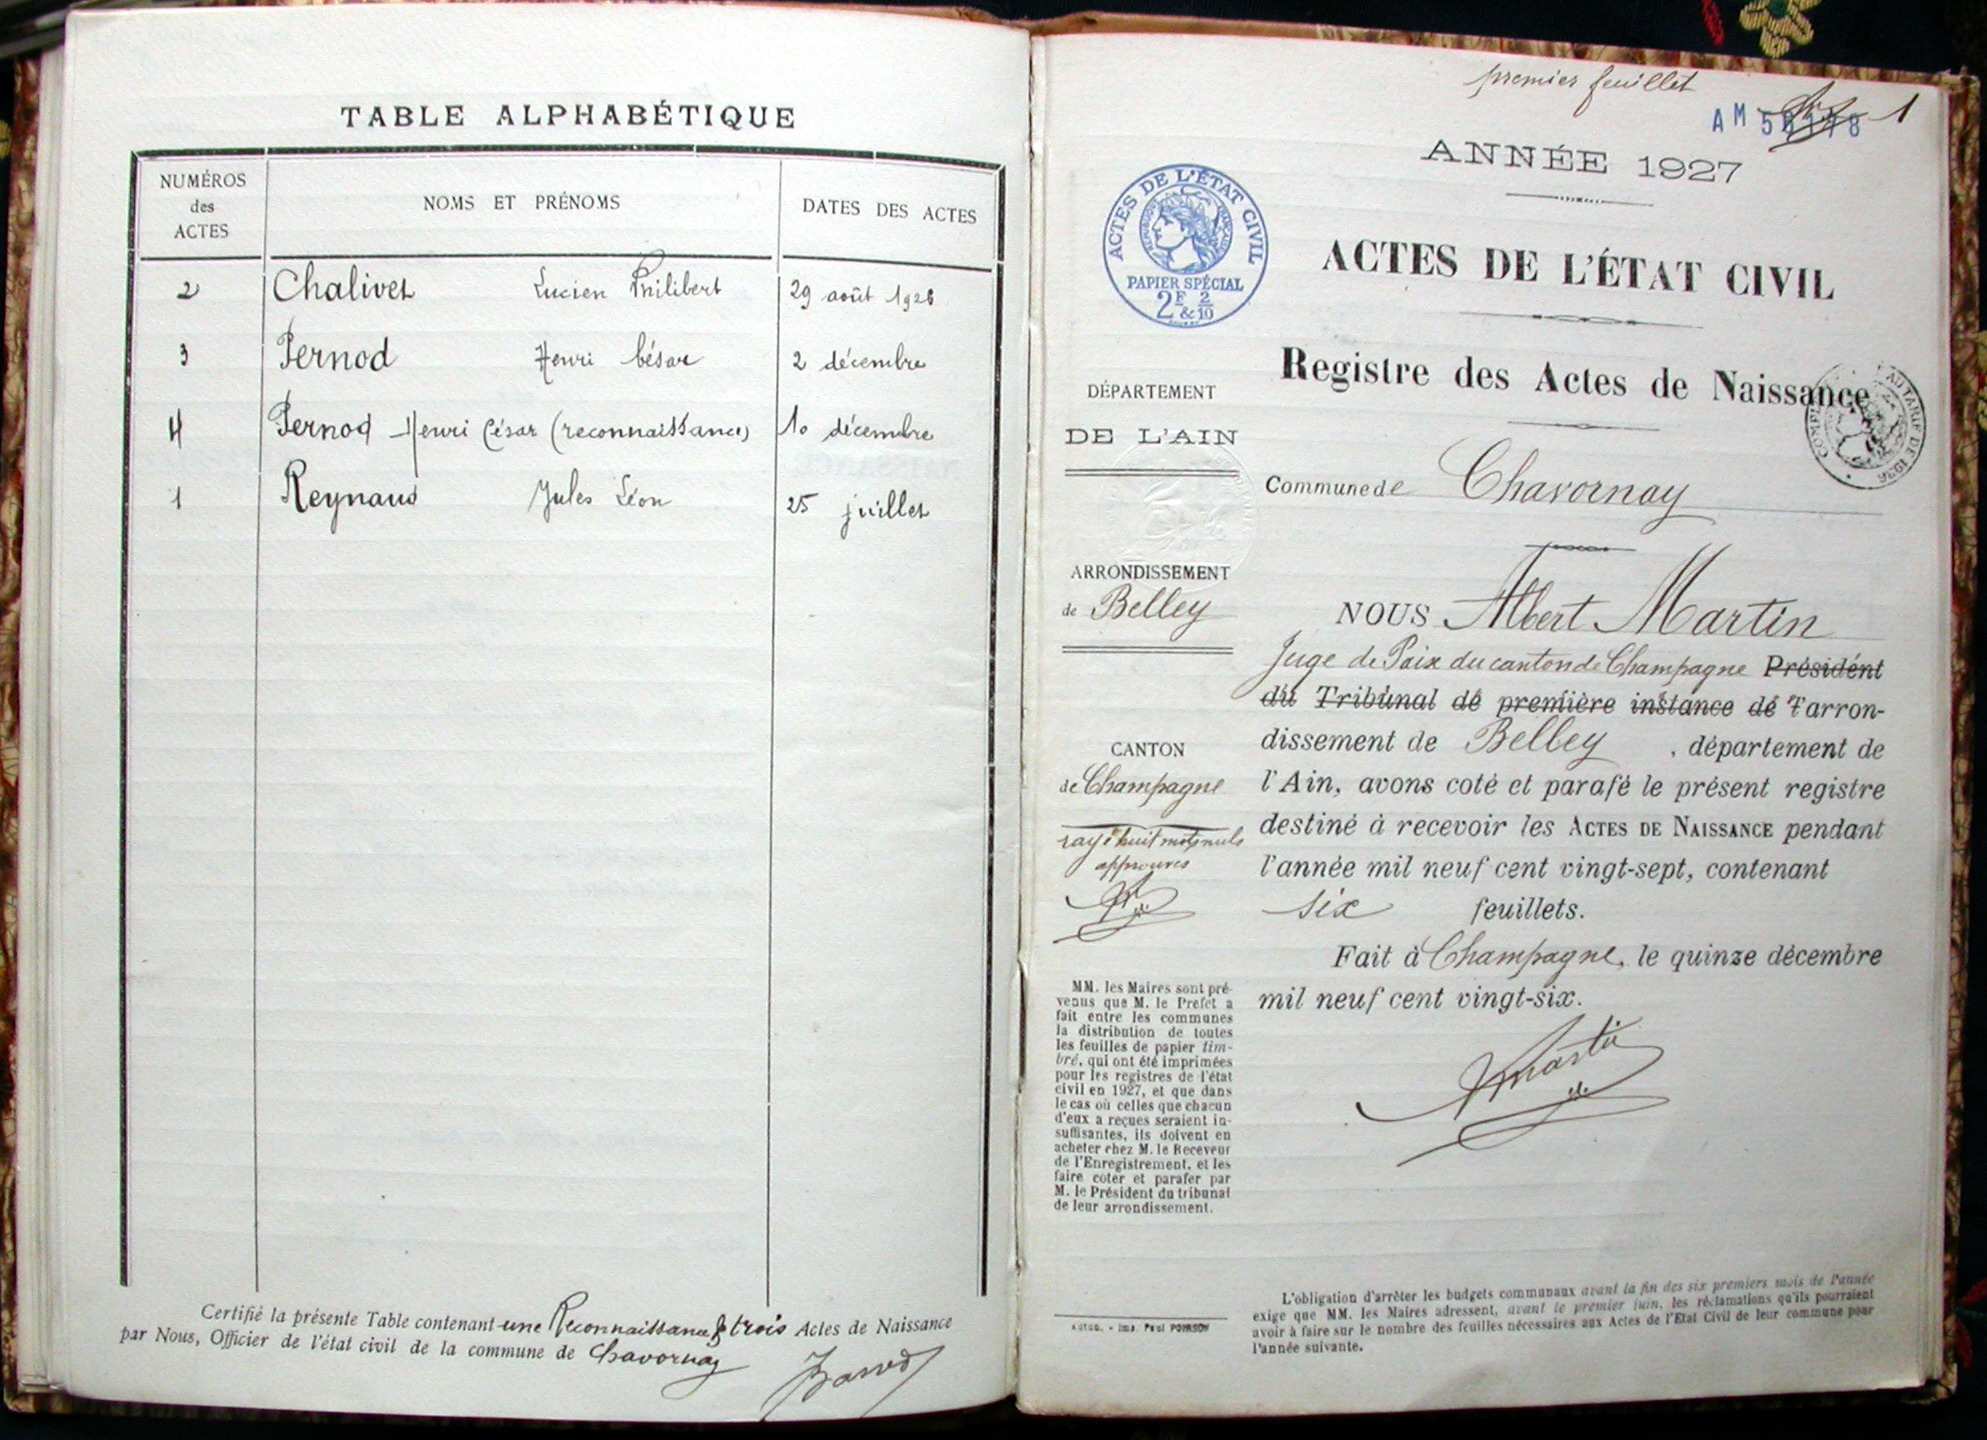 TABLE ALPHABÉTIQUE
NUMÉROS des ACTES NOMS ET PRÉNOMS DATES DES ACTES
2 Chalivet Lucien Philibert 29 août 1926
3 Pernod Henri César 2 décembre
4 Pernod Henri César (reconnaissance) 10 décembre
1 Reynaud Jules Léon 25 juillet
Certifié la présente Table contenant une Reconnaissance & trois Actes de Naissance
par Nous, Officier de l'état civil de la commune de Chavornay
premier feuillet
AM 1
ANNÉE 1927
ACTES DE L'ÉTAT CIVIL
RÉPUBLIQUE FRANÇAISE
PAPIER SPÉCIAL
2F & 2/10
ACTES DE L'ÉTAT CIVIL
Registre des Actes de Naissance
AU TARIF DE 1926
DÉPARTEMENT
DE L'AIN
Commune de Chavornay
ARRONDISSEMENT
de Belley
CANTON
de Champagne
rayé huit mots nuls
approuvés
NOUS Albert Martin
Juge de Paix du canton de Champagne Président
du Tribunal de première instance de l'arron-
dissement de Belley, département de
l'Ain, avons coté et parafé le présent registre
destiné à recevoir les ACTES DE NAISSANCE pendant
l'année mil neuf cent vingt-sept, contenant
six feuillets.
Fait à Champagne, le quinze décembre
mil neuf cent vingt-six.
AMartin
MM. les Maires sont pré-
venus que M. le Préfet a
fait entre les communes
la distribution de toutes
les feuilles de papier tim-
bré, qui ont été imprimées
pour les registres de l'état
civil en 1927, et que dans
le cas où celles que chacun
d'eux a reçues seraient in-
suffisantes, ils doivent en
acheter chez M. le Receveur
de l'Enregistrement, et les
faire coter et parafer par
M. le Président du tribunal
de leur arrondissement.
Imp. Paul
L'obligation d'arrêter les budgets communaux avant la fin des six premiers mois de l'année
exige que MM. les Maires adressent, avant le premier juin, les réclamations qu'ils pourraient
avoir à faire sur le nombre des feuilles nécessaires aux Actes de l'État Civil de leur commune pour
l'année suivante.